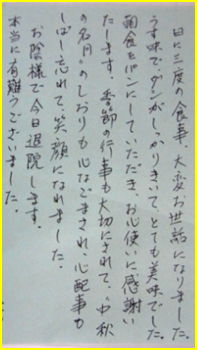 日に三度の食事、大変お世話になりました。
うす味で、ダシがしっかりきいて、とても美味でした。
朝食をパンにしていただき、お心使いに感謝い
たします。季節の行事も大切にされて、“中秋
の名月”のしおりも心なごまされ、心配事も
しばし忘れて、笑顔になれました。
お陰様で今日退院します。
本当に有難うございました。